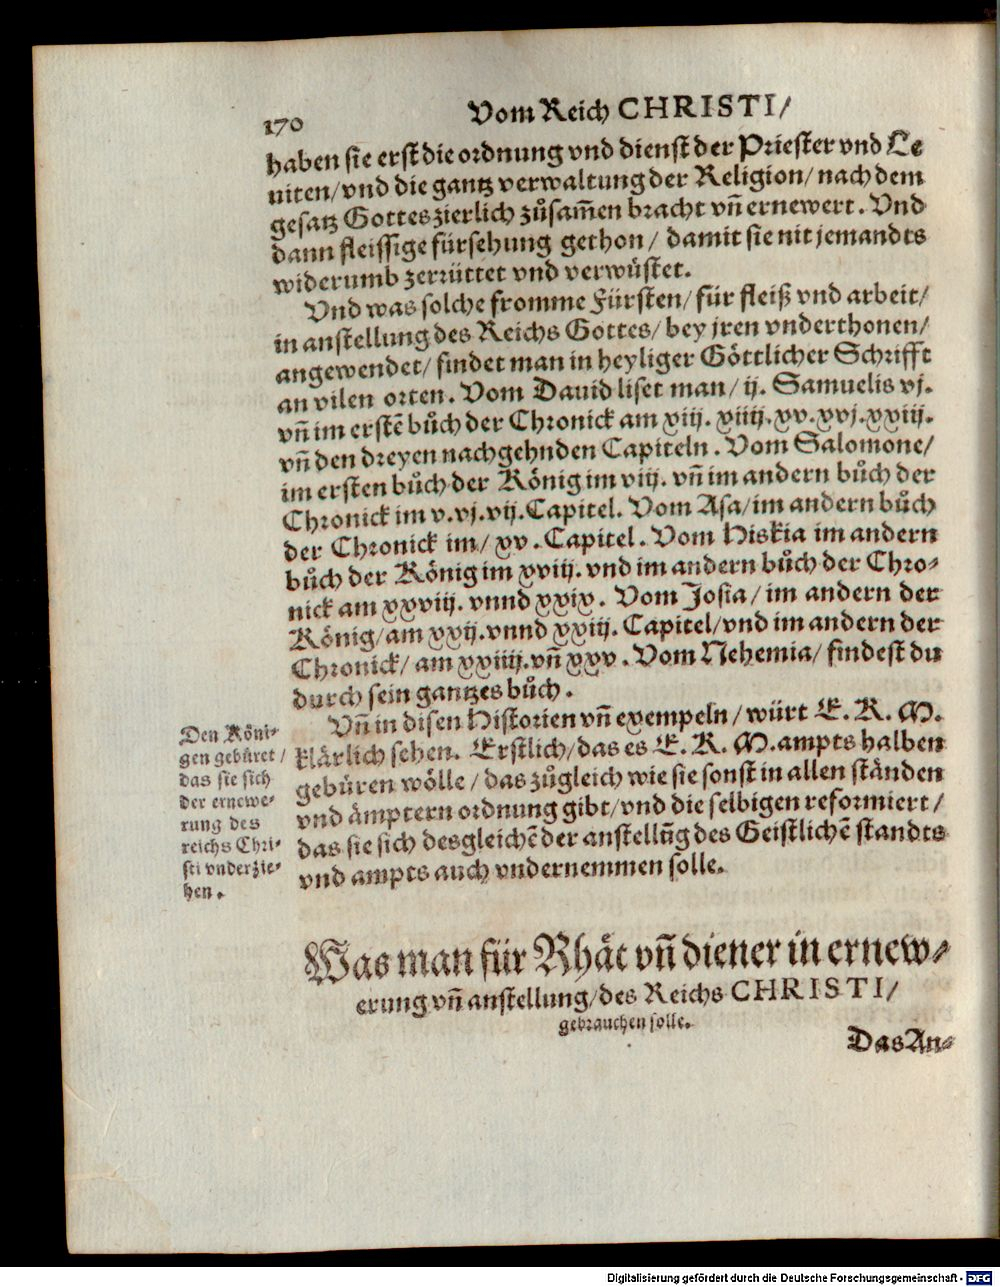 170
Vom Reich CHRISTI/
haben sie erst die ordnung vnd dienst der Priester vnd Le
uiten/ vnd die gantz verwaltung der Religion/ nach dem
gesatz Gottes zierlich zůsam̃en bracht vñ ernewert. Vnd
dann fleissige fürsehung gethon/ damit sie nit jemandts
widerumb zerrüttet vnd verwüstet.
Vnd was solche fromme Fürsten/ für fleiß vnd arbeit/
in anstellung des Reichs Gottes/ bey jren vnderthonen/
angewendet/ findet man in heyliger Göttlicher Schrifft
an vilen orten. Vom Dauid liset man/ ij. Samuelis vj.
vñ im erstẽ bůch der Chronick am xiij. xiiij. xv. xvj. xxiij.
vñ den dreyen nachgehnden Capiteln. Vom Salomone/
im ersten bůch der König im viij. vñ im andern bůch der
Chronick im v. vj. vij. Capitel. Vom Asa/ im andern bůch
der Chronick im/ xv. Capitel. Vom Hiskia im andern
bůch der König im xviij. vnd im andern bůch der Chro-
nick am xxviij. vnnd xxix. Vom Josia/ im andern der
König/ am xxij. vnnd xxiij. Capitel/ vnd im andern der
Chronick/ am xxiiij. vñ xxv. Vom Nehemia/ findest du
durch sein gantzes bůch.
Vñ in disen Historien vñ exempeln/ würt E. K. M.
klärlich sehen. Erstlich/ das es E. K. M. ampts halben
gebüren wölle/ das zůgleich wie sie sonst in allen ständen
vnd ämptern ordnung gibt/ vnd die selbigen reformiert/
das sie sich desgleichẽ der anstellũg des Geistlichẽ standts
vnd ampts auch vndernemmen solle.
Den Köni-
gen gebüret/
das sie sich
der ernewe-
rung des
reichs Chri-
sti vnderzie-
hen.
Was man für Rhät vñ diener in ernew-
erung vñ anstellung/ des Reichs CHRISTI/
gebrauchen solle.
Das An-
Digitalisierung gefördert durch die Deutsche Forschungsgemeinschaft - DFG